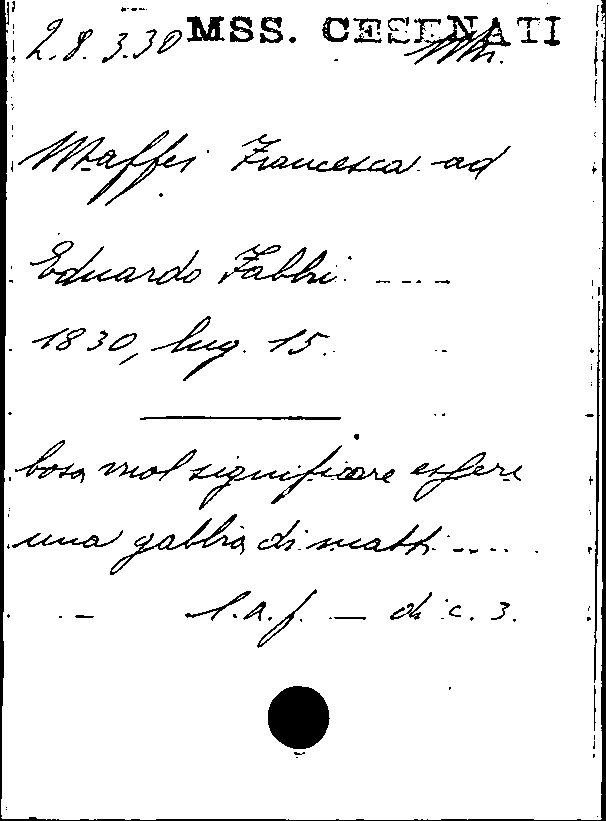 2.8.3.30 MSS. CESENATI
Maffei Francesca ad
Eduardo Fabbri ----
1830, lug. 15.
Cosa vuol significare essere
una gabbia di matti ....
l.a.f. — di c. 3.